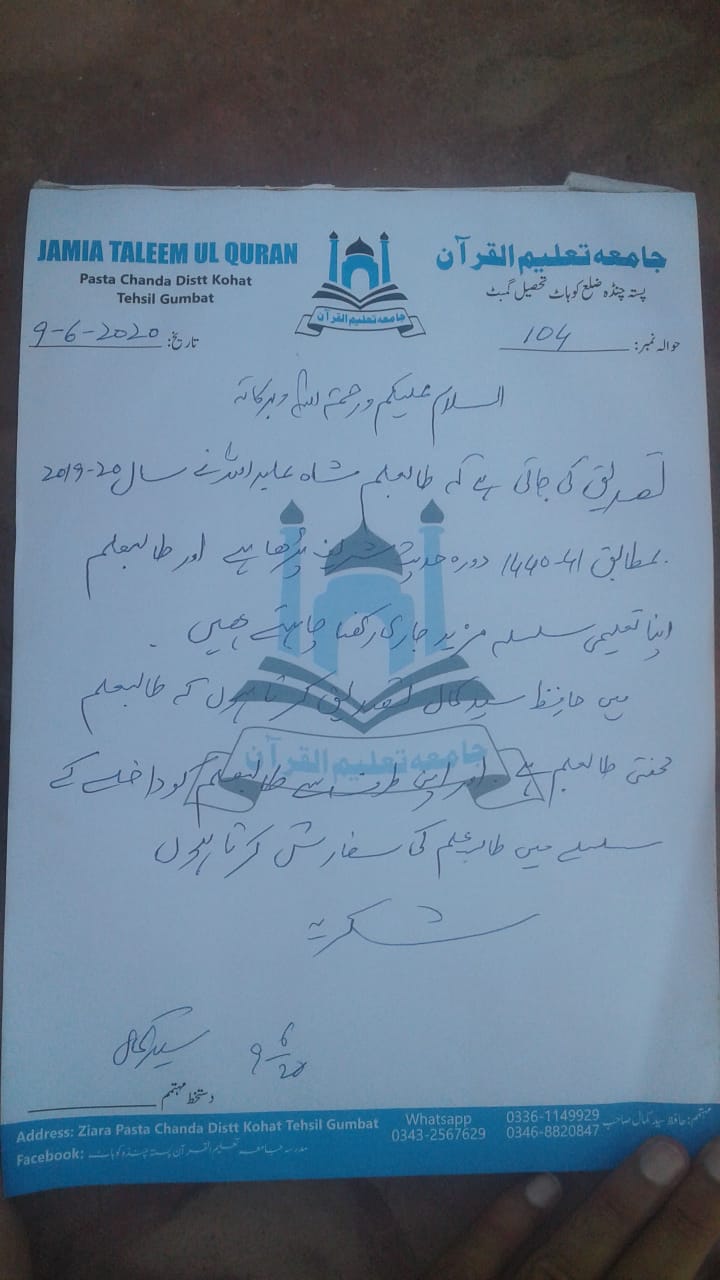 JAMIA TALEEM UL QURAN
Pasta Chanda Distt Kohat
Tehsil Gumbat
جامعہ تعلیم القرآن
پستہ چنڈہ ضلع کوہاٹ تحصیل گمبٹ
جامعہ تعلیم القرآن
تاریخ: 9-6-2020
حوالہ نمبر: 104
السلام علیکم ورحمۃ اللہ وبرکاتہ
تصدیق کی جاتی ہے کہ طالبعلم شاہ عابد اللہ نے سال 20-2019
بمطابق 41-1440 دورہ حدیث شریف پڑھا ہے اور طالبعلم
اپنا تعلیمی سلسلہ مزید جاری رکھنا چاہتے ھیں۔
میں حافظ سید کمال تصدیق کرتا ہوں کہ طالبعلم
محنتی طالبعلم ہے۔ اور اپنی طرف سے طالبعلم کو داخلے کے
سلسلے میں طالب علم کی سفارش کرتا ہوں
شکریہ
جامعہ تعلیم القرآن
سید کمال
9-6-20
دستخط مہتمم
Address: Ziara Pasta Chanda Distt Kohat Tehsil Gumbat
Facebook: مدرسہ جامعہ تعلیم القرآن پستہ چنڈہ کوہاٹ
Whatsapp
0343-2567629
0336-1149929
0346-8820847
مہتمم: حافظ سید کمال صاحب